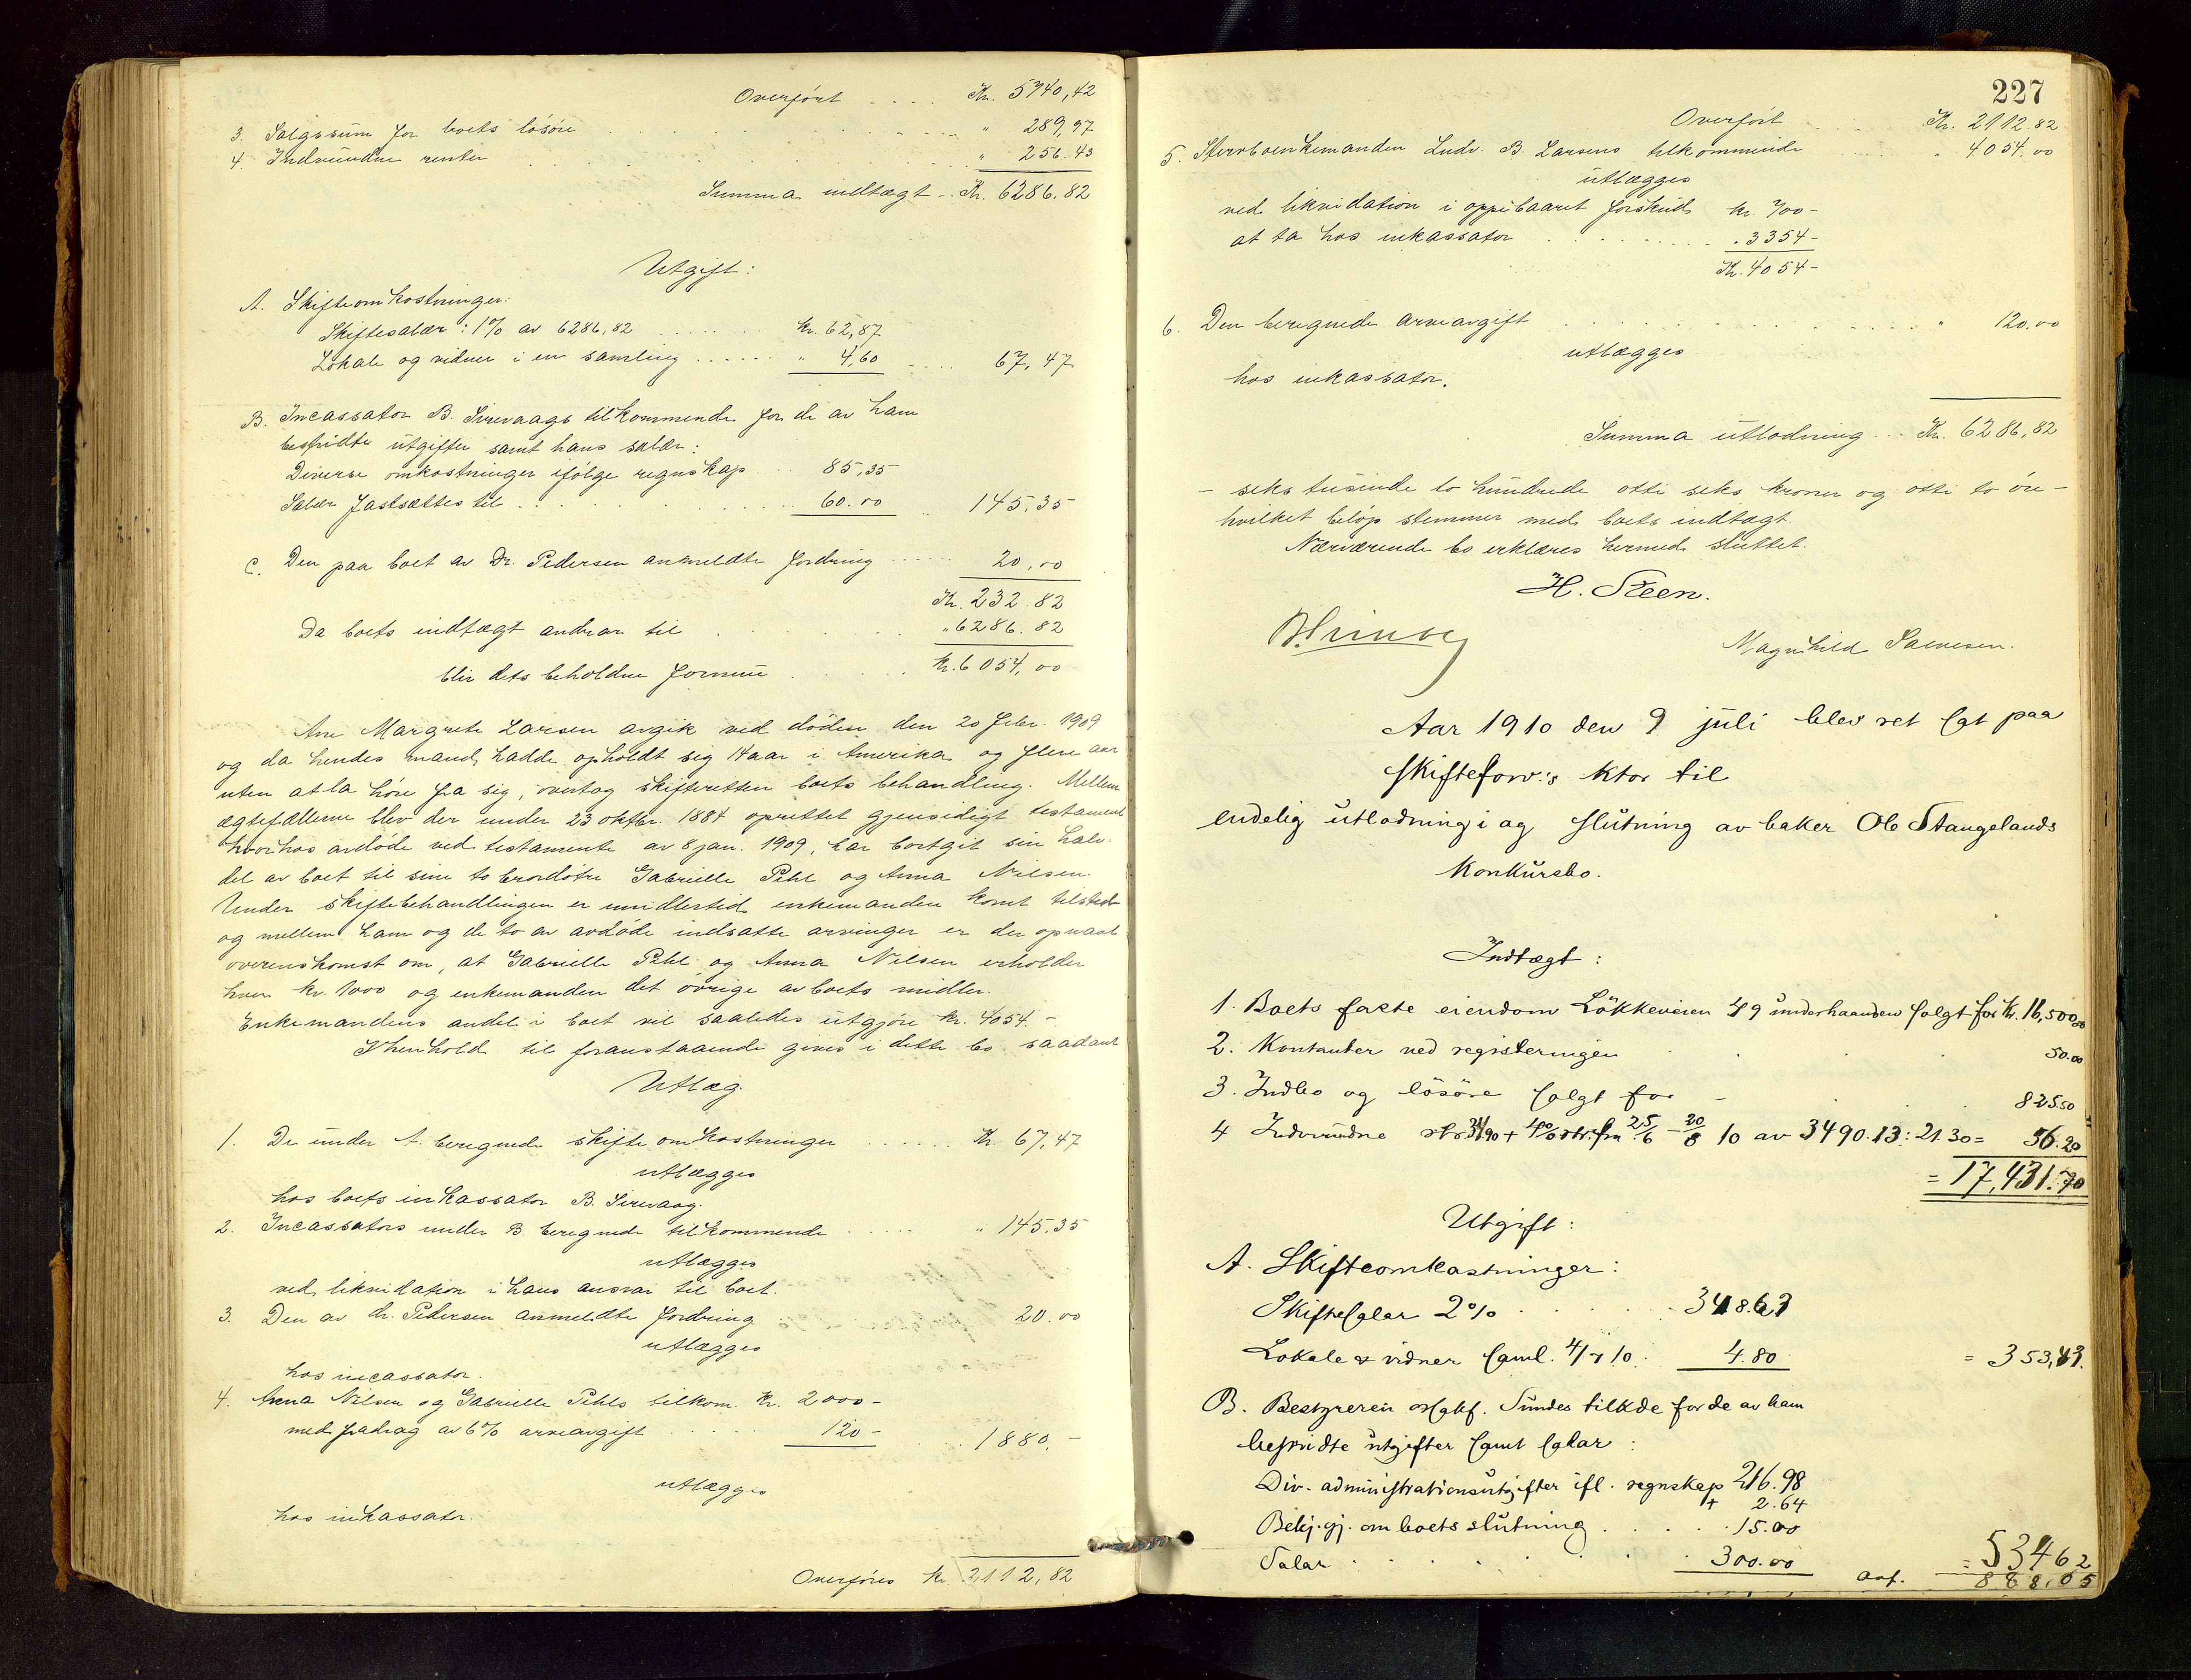 Overført .... Kr. 5740,42
3. Salgssum for boets løsøre .... " 289,97
4. Indvundne renter .... " 256.43
Summa indtægt .. Kr. 6286.82
Utgift:
A. Skifteomkostninger:
Skiftesalær: 1% av 6286,82 .... kr. 62,87
Lokale og vidner i en samling .... " 4,60 .... 67,47
B. Incassator B. Sirevaags tilkommende for de av ham
bestridte utgifter samt hans salær:
Diverse omkostninger ifølge regnskap .. 85,35
Salær fastsættes til .... 60.00 .. 145.35
C. Den paa boet av Dr. Pedersen anmeldte fordring .... 20.00
Kr. 232.82
Da boets indtægt andrar til .... " 6286.82
blir dets beholdne formue .... kr. 6054,00
Ane Margrete Larsen avgik ved døden den 20 febr. 1909
og da hendes mand hadde opholdt sig 14 aar i Amerika og flere aar
uten at la høre fra sig, overtog skifteretten boets behandling. Mellem
ægtefællerne blev der under 23 oktbr. 1884 oprettet gjensidigt testament
hvorhos avdøde ved testamente av 8 jan. 1909, har bortgit sin halv-
del av boet til sine to brordøtre Gabrielle Pihl og Anna Nilsen.
Under skiftebehandlingen er imidlertid enkemanden komt tilstede
og mellem ham og de to av avdøde indsatte arvinger er der opnaat
overenskomst om, at Gabrielle Pihl og Anna Nilsen erholder
hver kr. 1000 og enkemanden det øvrige av boets midler.
Enkemandens andel i boet vil saaledes utgjøre kr. 4054.-
I henhold til foranstaaende gives i dette bo saadant
Utlæg.
1. De under A. beregnede skifteomkostninger .... Kr. 67,47
utlægges
hos boets inkassator B. Sirevaag.
2. Incassators under B beregnede tilkommende .... " 145.35
utlægges
ved likvidation i hans ansvar til boet.
3. Den av dr. Pedersen anmeldte fordring 20.00
utlægges
hos incassator.
4. Anna Nilsen og Gabrielle Pihls tilkom. kr. 2000-
med fradrag av 6% arveavgift .... 120- .. 1880.-
utlægges
hos inkassator.
Overføres kr 2112,82
227
Overført .... Kr. 2112.82
5. Stervboenkemanden Ludv. B. Larsens tilkommende .... " 4054.00
utlægges
ved likvidation i oppebaaret forskud kr. 700-
at ta hos inkassator .... " 3354-
Kr. 4054-
6. Den beregnede arveavgift .... " 120.00
utlægges
hos inkassator.
Summa utlodning ... Kr. 6286,82
- seks tusinde to hundrede otti seks kroner og otti to øre -
hvilket beløp stemmer med boets indtægt.
Nærværende bo erklæres hermed sluttet.
H. Steen.
Magnhild Salvesen.
Aar 1910 den 9 juli blev ret sat paa
skifteforv:s ktor til
endelig utlodning i og slutning av baker Ole Stangelands
konkursbo.
Indtægt:
1. Boets faste eiendom Løkkeveien 49 underhaanden solgt for kr. 16,500.00
2. Kontanter ved registeringen 50.00
3. Indbo og løsøre solgt for - 825.50
4 Indvundne rtr 34.90 + 4% rtr. fra 25/6 - 20/8 10 av 3490.13: 21.30 = 56.20
= 17,431.70
Utgift:
A. Skifteomkostninger:
Skiftesalær 2% .... 348.63
Lokale & vidner saml. 4/7 10: 4.80 = 353,43.
B. Bestyreren Sundes tilkde for de av ham
bestridte utgifter samt salær:
Div. administrationsutgifter ifl. regnskap 216.98
+ 2.64
Bekj.gj. om boets slutning .... 15.00
Salær .... 300.00 = 534 62
888,05